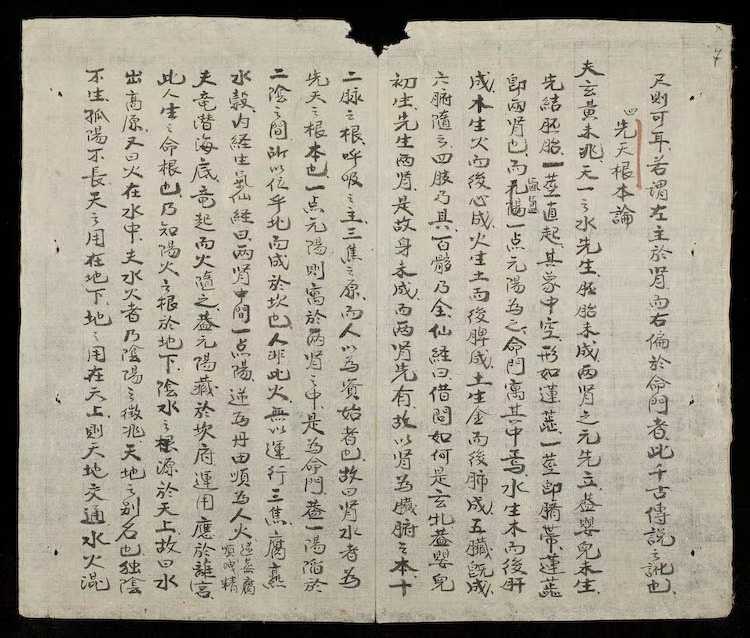 7
只則可耳若謂左主於腎而右偏於命門者此千古傳説之訛也
四先天根本論
夫玄黃未兆天一之水先生胚胎未成兩腎之元先立蓋嬰兒未生
先結胚胎一莖直起其象中空形如蓮蕊一莖即臍帶蓮蕊
即兩腎也而一点元陽為之命門寓其中焉水生木而後肝
成木生火而後心成火生土而後脾成土生金而後肺成五臟既成
六腑隨之四肢乃具百骸乃全仙經曰借問如何是玄牝蓋嬰兒
初生先生兩腎是故身未成而兩腎先有故以腎為臟腑之本十
二脉之根呼吸之主三焦之原而人以為資始者也故曰腎水者為
先天之根本也一点元陽則寓於兩腎之中是為命門蓋一陽陷於
二陰之間所以位乎北而成於坎也人非此火無以運行三焦腐熟
水穀內経生氣仙經曰兩腎中間一点陽逆為丹田順為人火
夫竜潛海底竜起而火隨之蓋元陽藏於坎府運用應於離宮
此人生之命根也乃知陽火之根於地下陰水之根源於天上故曰水
出高原又曰火在水中夫水火者乃陰陽之徵兆天地之別名也独陰
不生孤陽不長天之用在地下地之用在天上則天地交通水火混